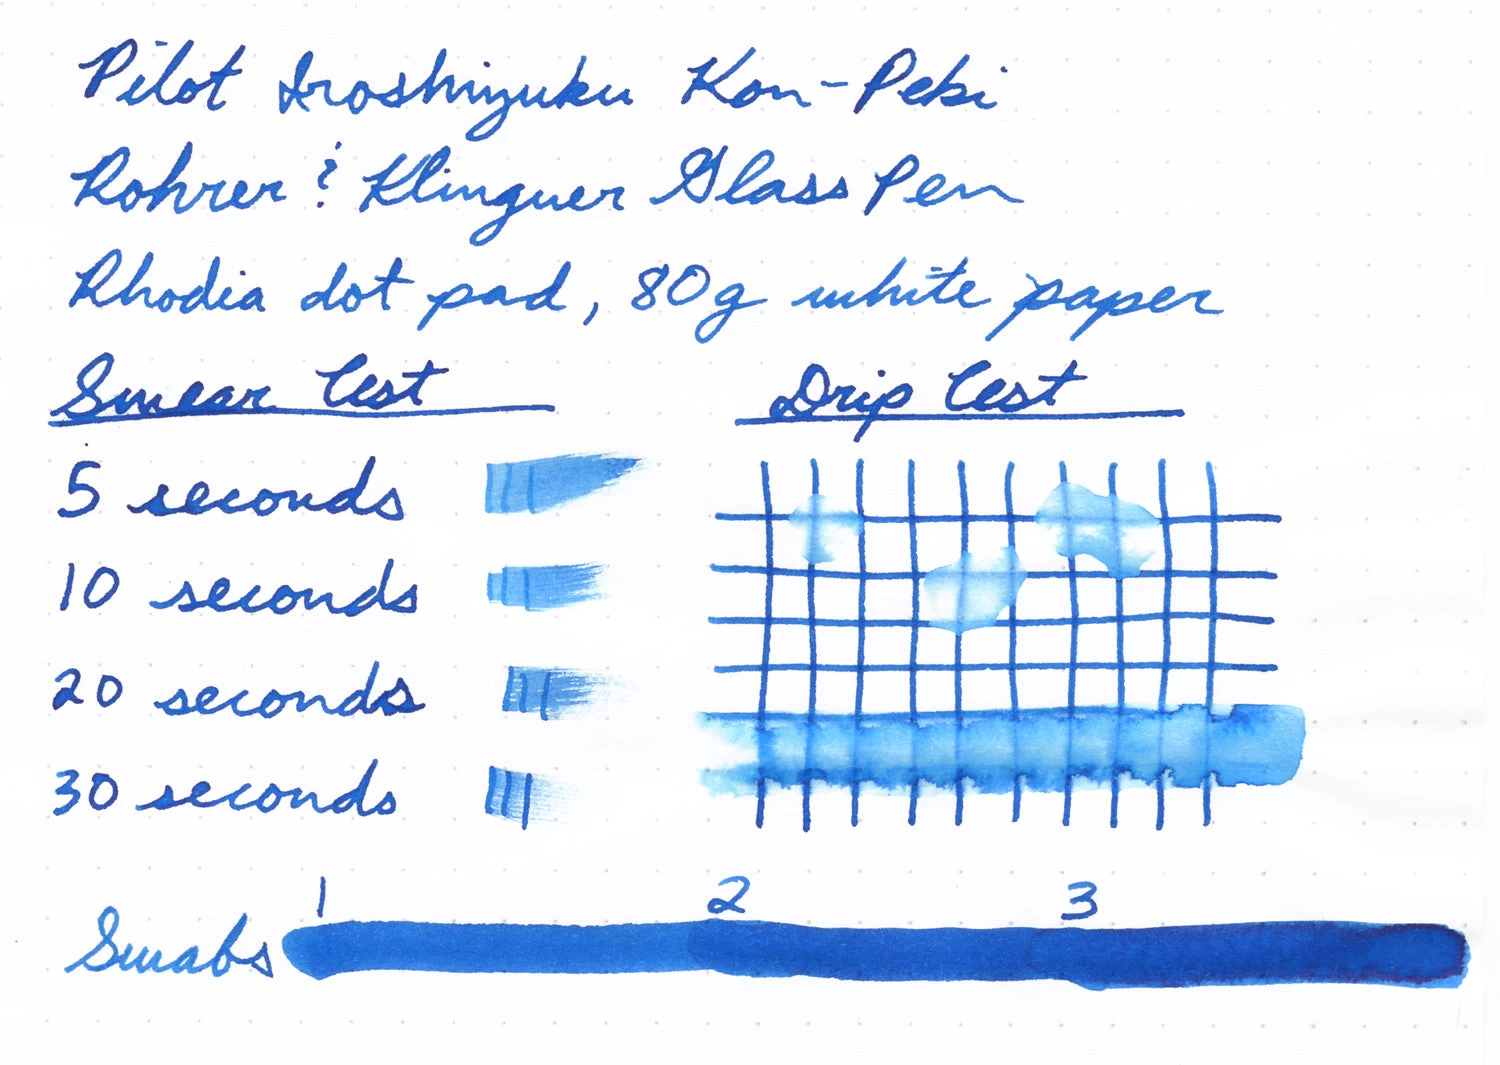 Pilot Iroshizuku Kon-Peki
Rohrer & Klinguer Glass Pen
Rhodia dot pad, 80g white paper
Smear Test
Drip Test
5 seconds
10 seconds
20 seconds
30 seconds
1 2 3
Swabs